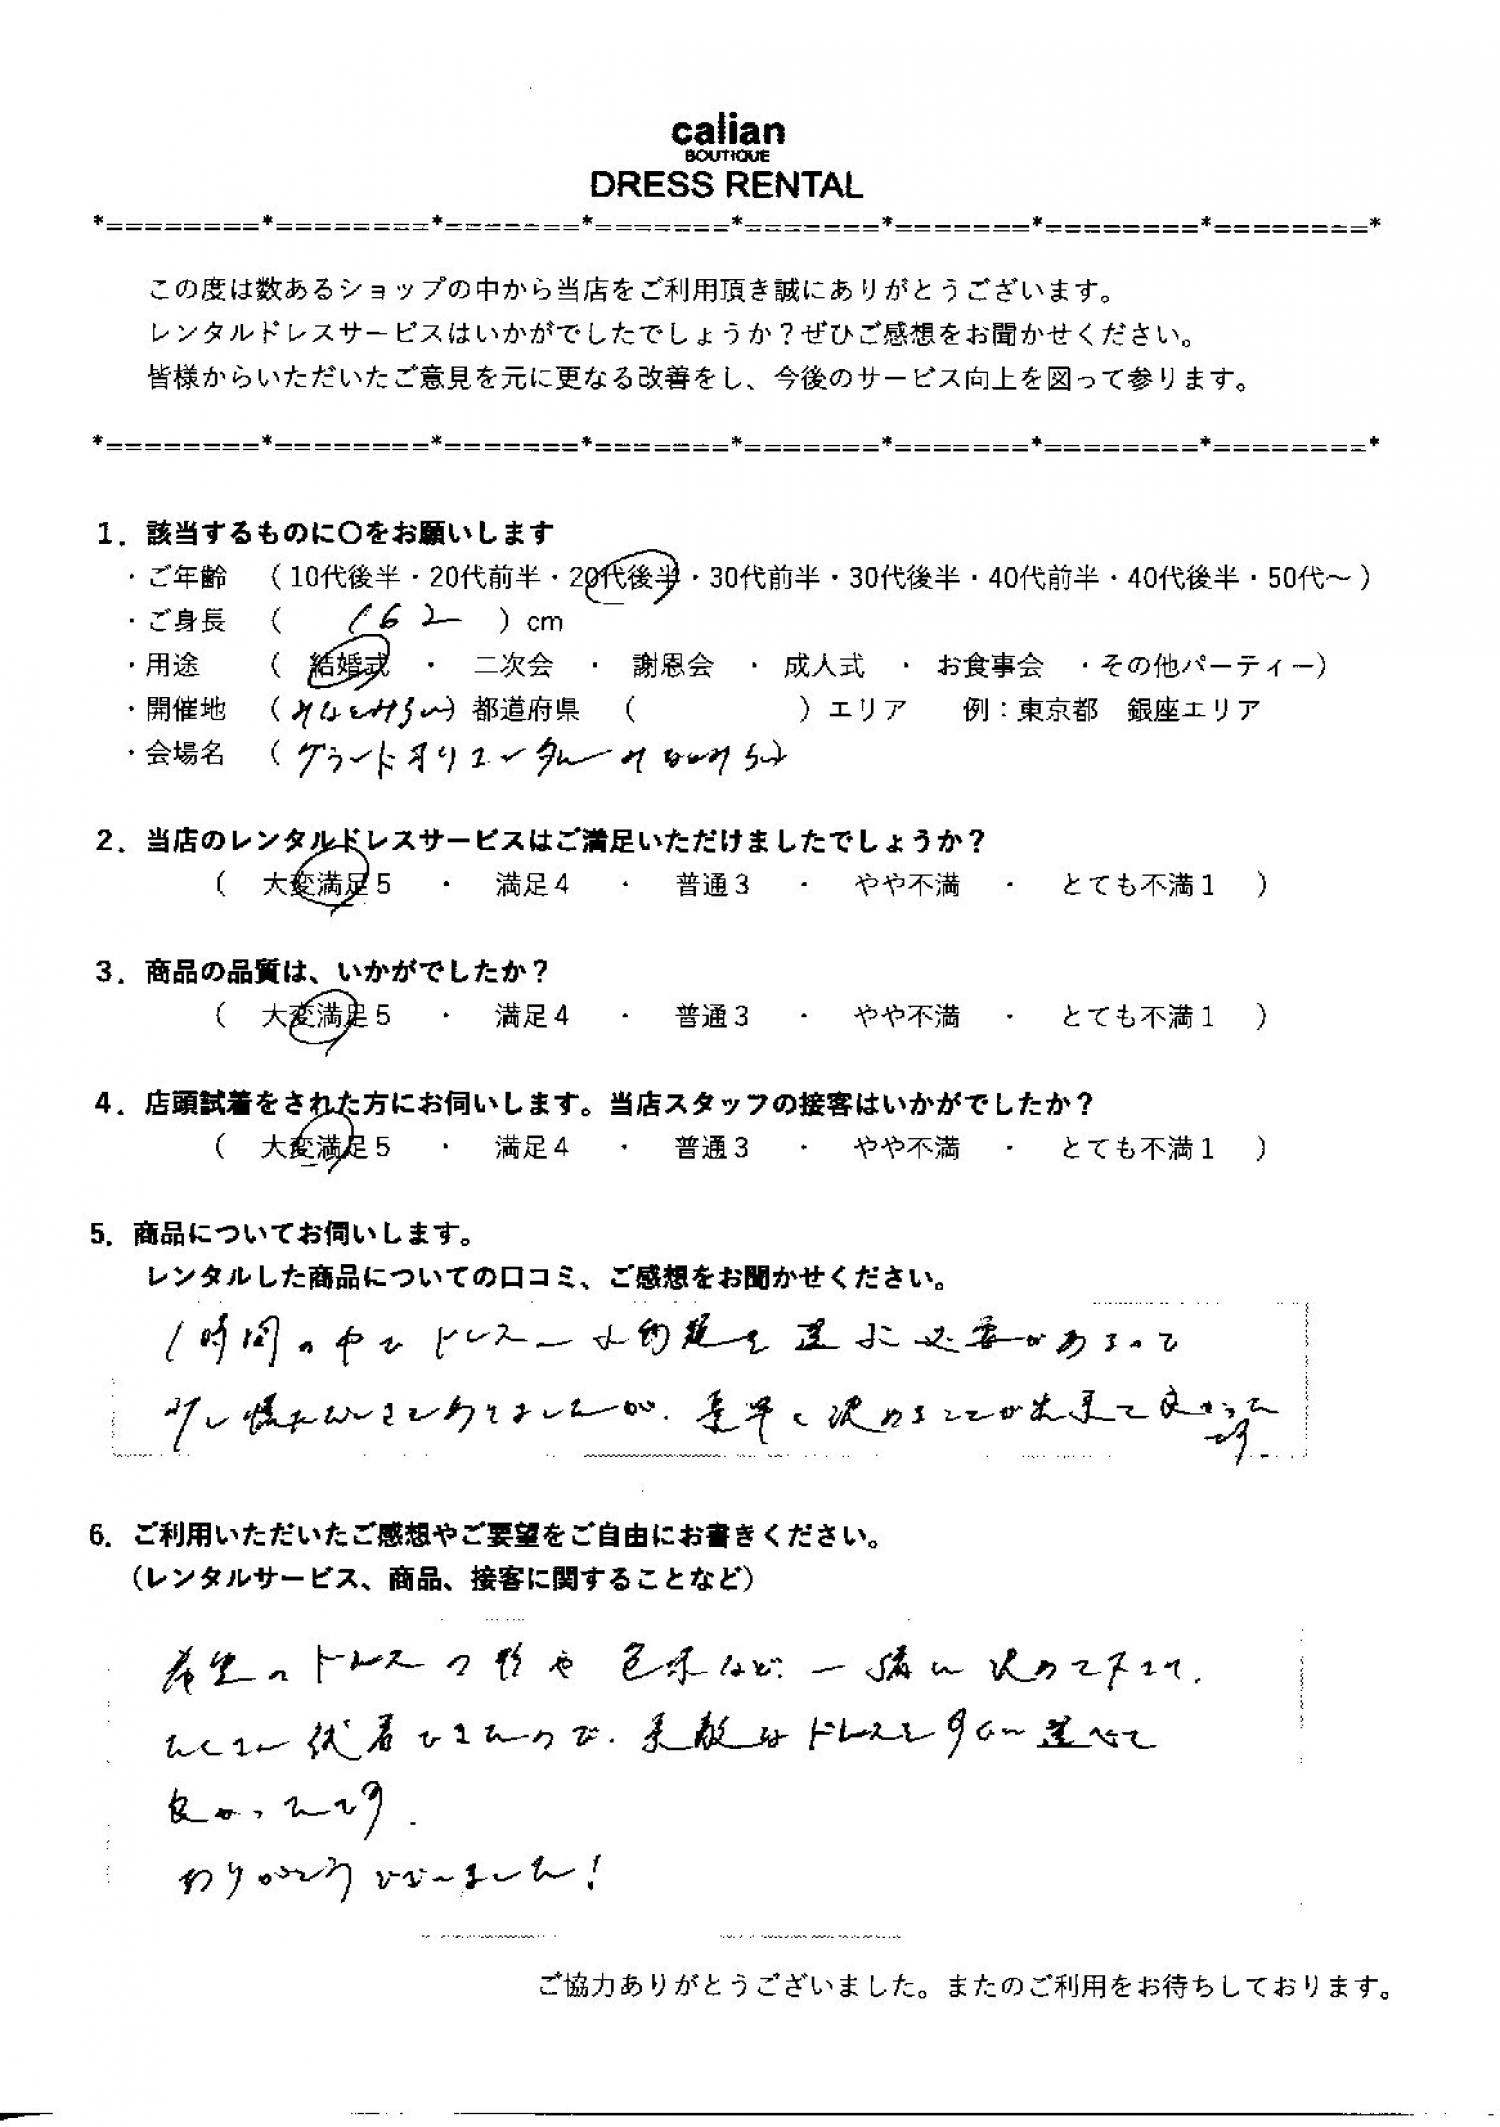 calian
BOUTIQUE
DRESS RENTAL
*========*========*=======*=======*=======*=======*========*========*
この度は数あるショップの中から当店をご利用頂き誠にありがとうございます。
レンタルドレスサービスはいかがでしたでしょうか？ぜひご感想をお聞かせください。
皆様からいただいたご意見を元に更なる改善をし、今後のサービス向上を図って参ります。
*========*========*=======*=======*=======*=======*========*========*
1．該当するものに〇をお願いします
・ご年齢　（10代後半・20代前半・20代後半・30代前半・30代後半・40代前半・40代後半・50代～）
・ご身長　（　162　）cm
・用途　（　結婚式　・　二次会　・　謝恩会　・　成人式　・　お食事会　・その他パーティー）
・開催地　（みなとみらい）都道府県　（　　　）エリア　例：東京都　銀座エリア
・会場名　（グランドオリエンタルみなとみらい）
2．当店のレンタルドレスサービスはご満足いただけましたでしょうか？
（　大変満足5　・　満足4　・　普通3　・　やや不満　・　とても不満1　）
3．商品の品質は、いかがでしたか？
（　大変満足5　・　満足4　・　普通3　・　やや不満　・　とても不満1　）
4．店頭試着をされた方にお伺いします。当店スタッフの接客はいかがでしたか？
（　大変満足5　・　満足4　・　普通3　・　やや不満　・　とても不満1　）
5．商品についてお伺いします。
レンタルした商品についての口コミ、ご感想をお聞かせください。
1時間の中でドレス 小物類を選ぶ必要があるので
少し ありましたが、 決めることが出来て良かった
です。
6．ご利用いただいたご感想やご要望をご自由にお書きください。
（レンタルサービス、商品、接客に関することなど）
希望のドレスの形や色味など、一緒に決めて下さり、
たくさん試着できたので、素敵なドレスを 選べて
良かったです。
ありがとうございました！
ご協力ありがとうございました。またのご利用をお待ちしております。